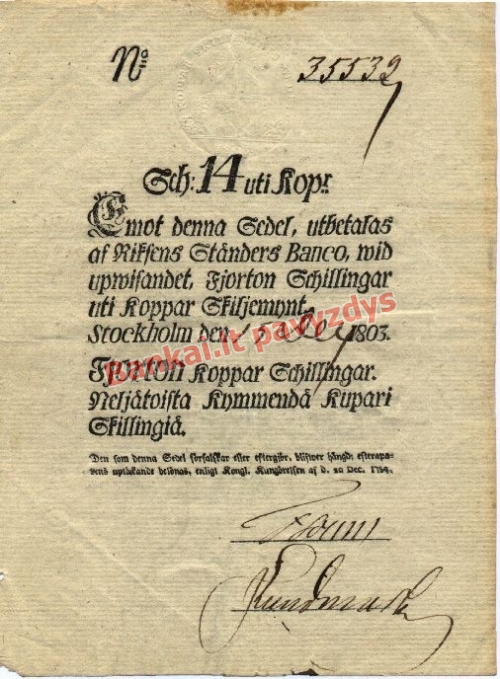 Nº 35532
Sch: 14 uti Kop:r
Emot denna Sedel, utbetalas
af Riksens Ständers Banco, wid
upwisandet, Fjorton Schillingar
uti Koppar Skiljemynt.
Stockholm den 1803.
Fjorton Koppar Schillingar.
Neljätoista Kymmendä Kupari
Skillingiä.
Den som denna Sedel förfalskar eller eftergör, blifwer hängd; efterapa-
rens uptäckande belönas, enligt Kongl. Kungörelsen af d. 20 Dec. 1754.
Bankai.lt pavyzdys